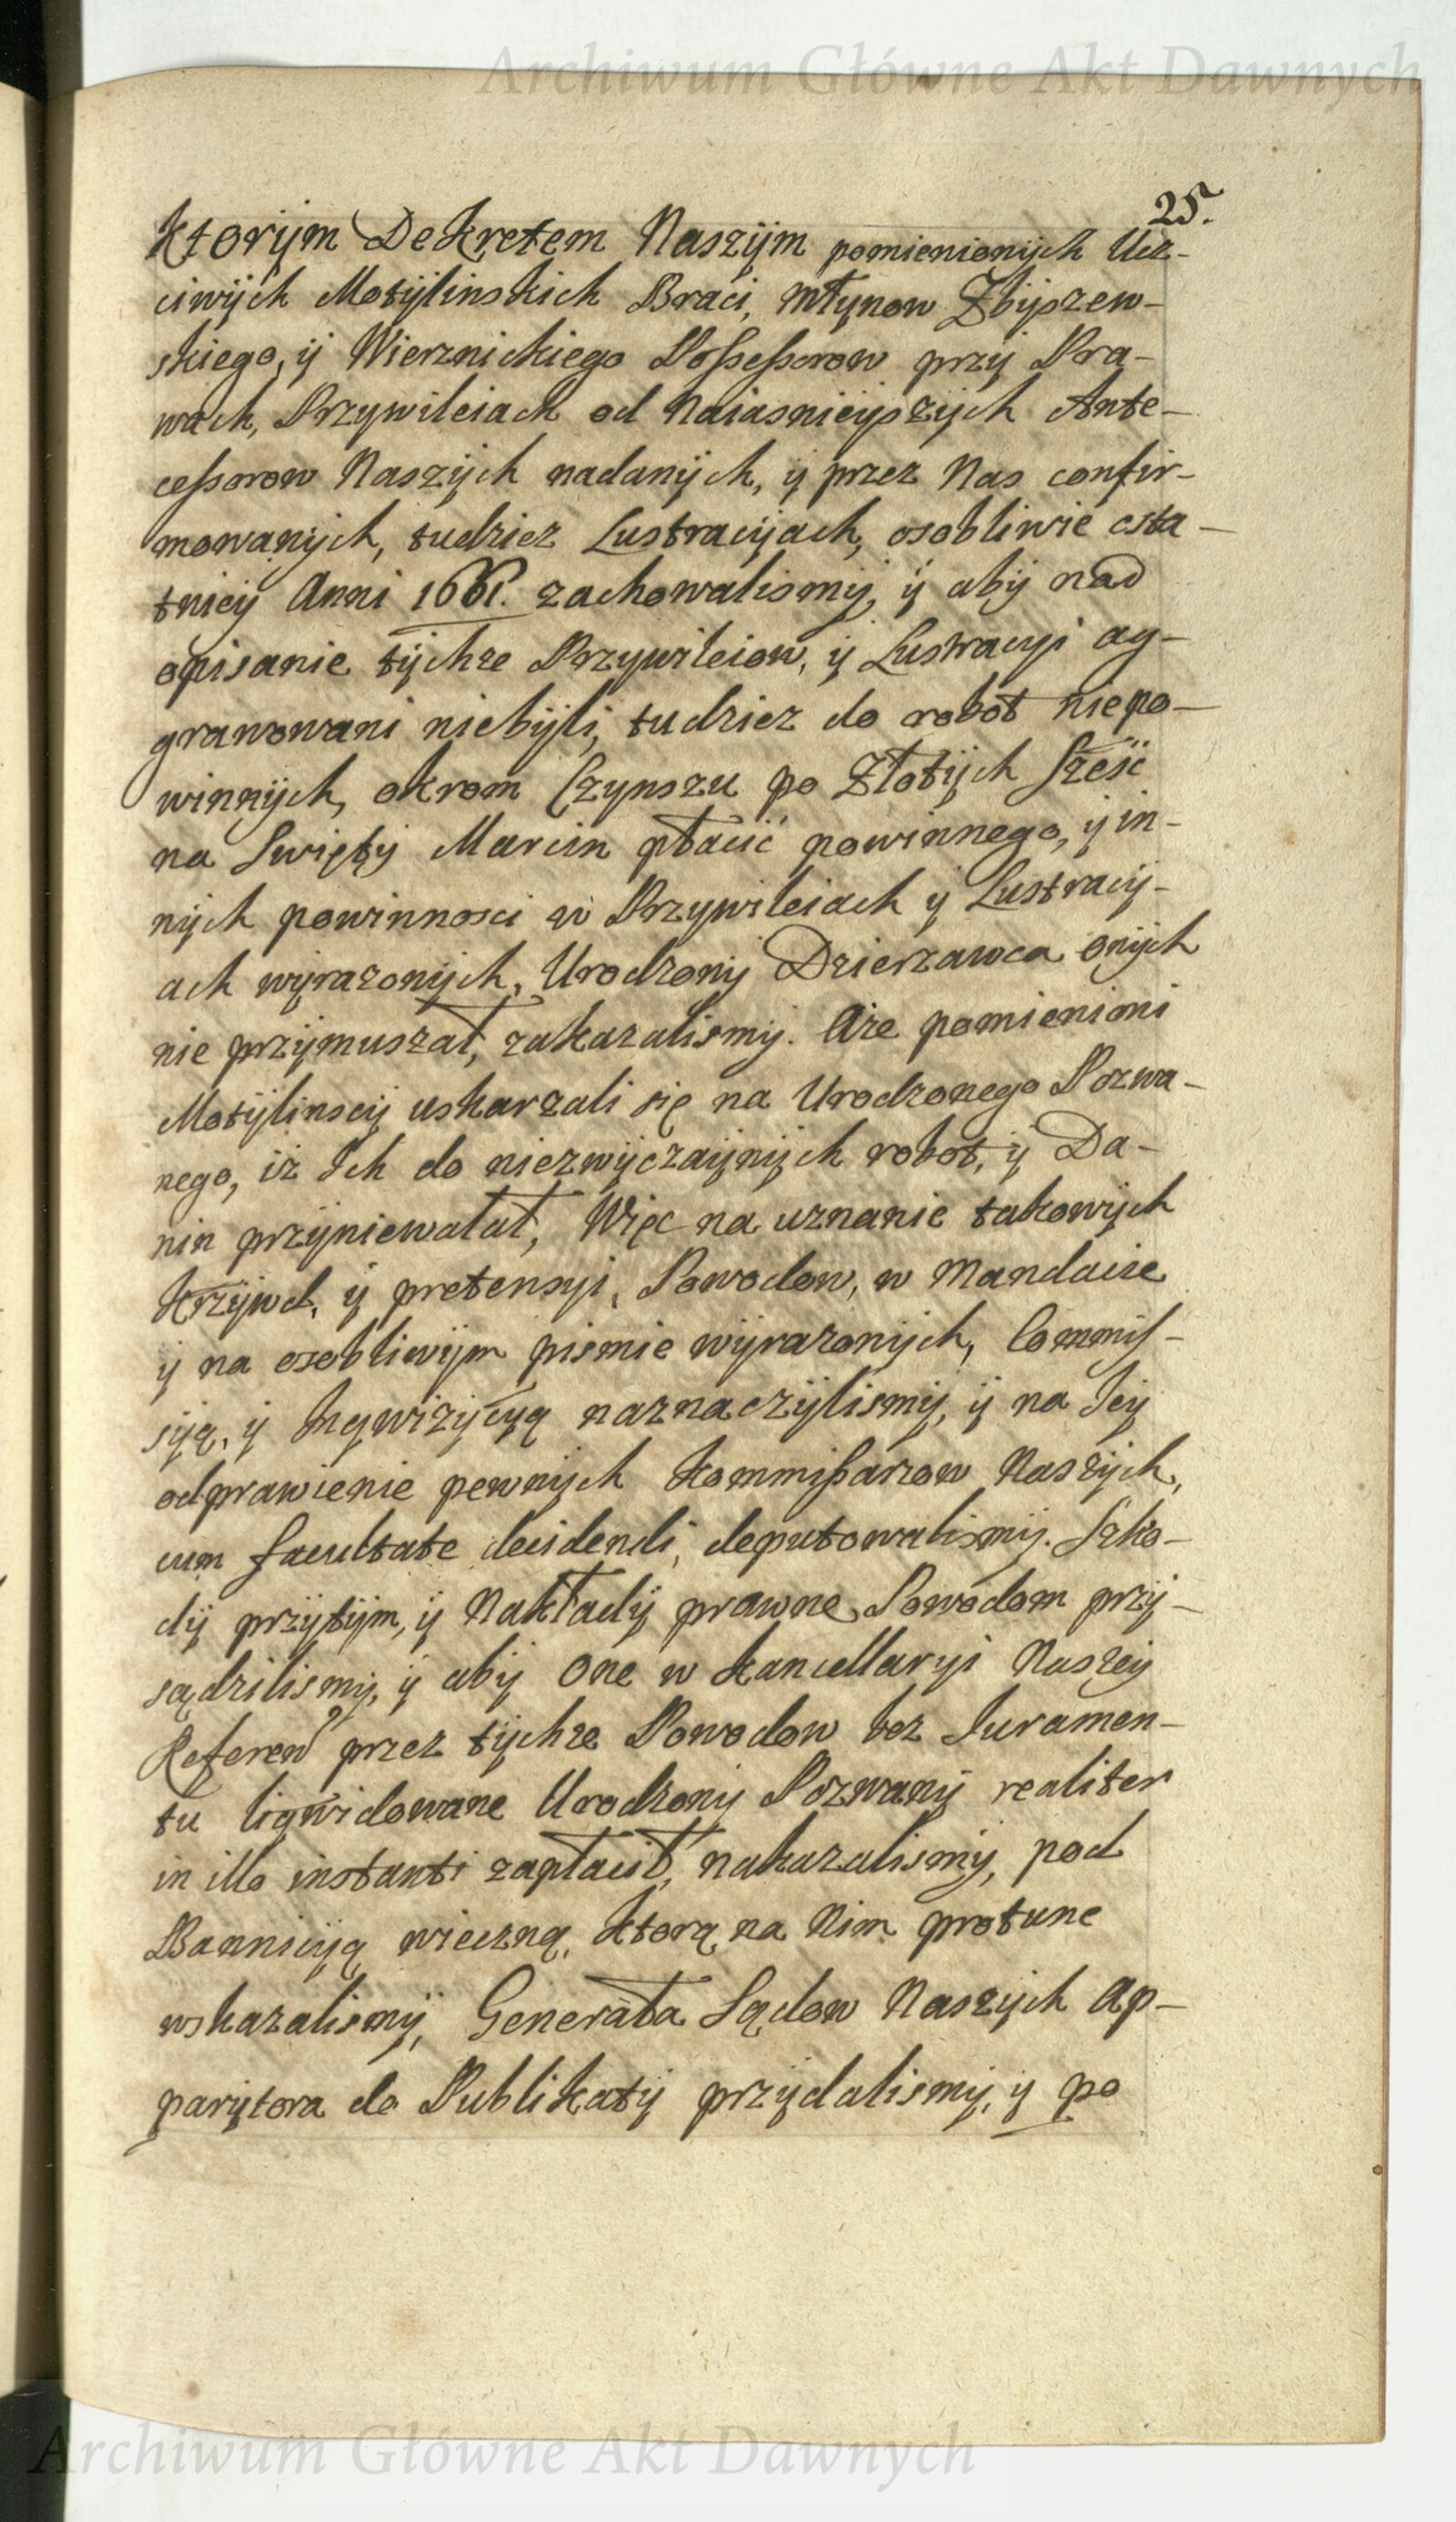 Archiwum Główne Akt Dawnych
25.
Ktorÿm Dekretem Naszÿm pomienionÿch Ucz-
ciwÿch Motÿlinskich Braci, Młynow Zbÿszew-
skiego, ÿ Wierznickiego Possessorow przÿ Pra-
wach, Przywileiach od Naiasnieÿszÿch Ante-
cessorow Naszÿch nadanÿch, ÿ przez Nas confir-
mowanÿch, tudziez Lustracÿach, osobliwie osta-
tnieÿ Anni 1661. zachowalismÿ, ÿ abÿ nad
opisanie tÿchze Przywileiow, ÿ Lustracyi ag-
grawowani niebÿli, tudziez do robot niepo-
winnÿch, okrom Czynszu po Złotÿch Sześć
na Swiętÿ Marcin płacić powinnego, ÿ in-
nÿch powinnosci w Przywileiach ÿ Lustracÿ-
ach wÿrazonÿch, Urodzonÿ Dzierzawca onÿch
nie przÿmuszał, zakazalismÿ. Aże pomienioni
Motÿlinscÿ uskarzali się na Urodzonego Pozwa-
nego, iż Ich do niezwÿczaÿnÿch robot, ÿ Da-
nin przÿniewalał, Więc na uznanie takowÿch
Krzÿwd, ÿ pretensyi, Powodow, w Mandacie
ÿ na osobliwÿm pismie wÿrazonÿch, Commis-
sÿą, ÿ Inqwizÿcyą naznaczÿlismÿ, ÿ na Ieÿ
odprawienie pewnÿch Kommissarzow Naszÿch,
cum facultate decidendi, deputowalismÿ. Szko-
dÿ przÿtÿm, ÿ Nakładÿ prawne Powodom przÿ-
sądzilismÿ, ÿ abÿ One w Kancellaryi Naszeÿ
Referen przez tÿchze Powodow bez Iuramen-
tu liqwidowane Urodzonÿ Pozwanÿ realiter
in illo instanti zapłacił, nakazalismÿ, pod
Bannicÿą wieczną, Ktorą na Nim protunc
wskazalismÿ, Generała Sądow Naszÿch Ap-
parÿtora do Publikatÿ przÿdalismÿ, ÿ po
Archiwum Główne Akt Dawnych